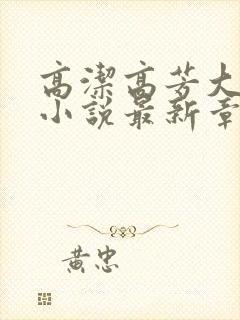 高潔高芳大
小說最新章
黃忠